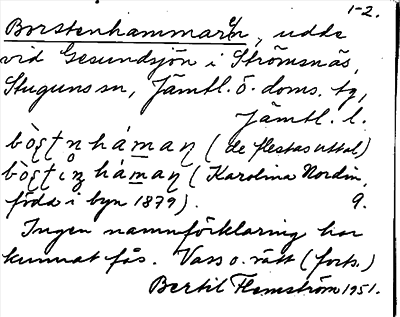 1-2.
Borstenhammaren, udde
vid Gesundsjön i Strömsnäs,
Stuguns sn, Jämtl. ö. doms. tg,
Jämtl. l.
(de flestas uttal)
(Karolina Nordin,
född i byn 1879). 9.
Ingen namnförklaring har
kunnat fås. Vass o. rått (forts.)
Bertil Flemström 1951.